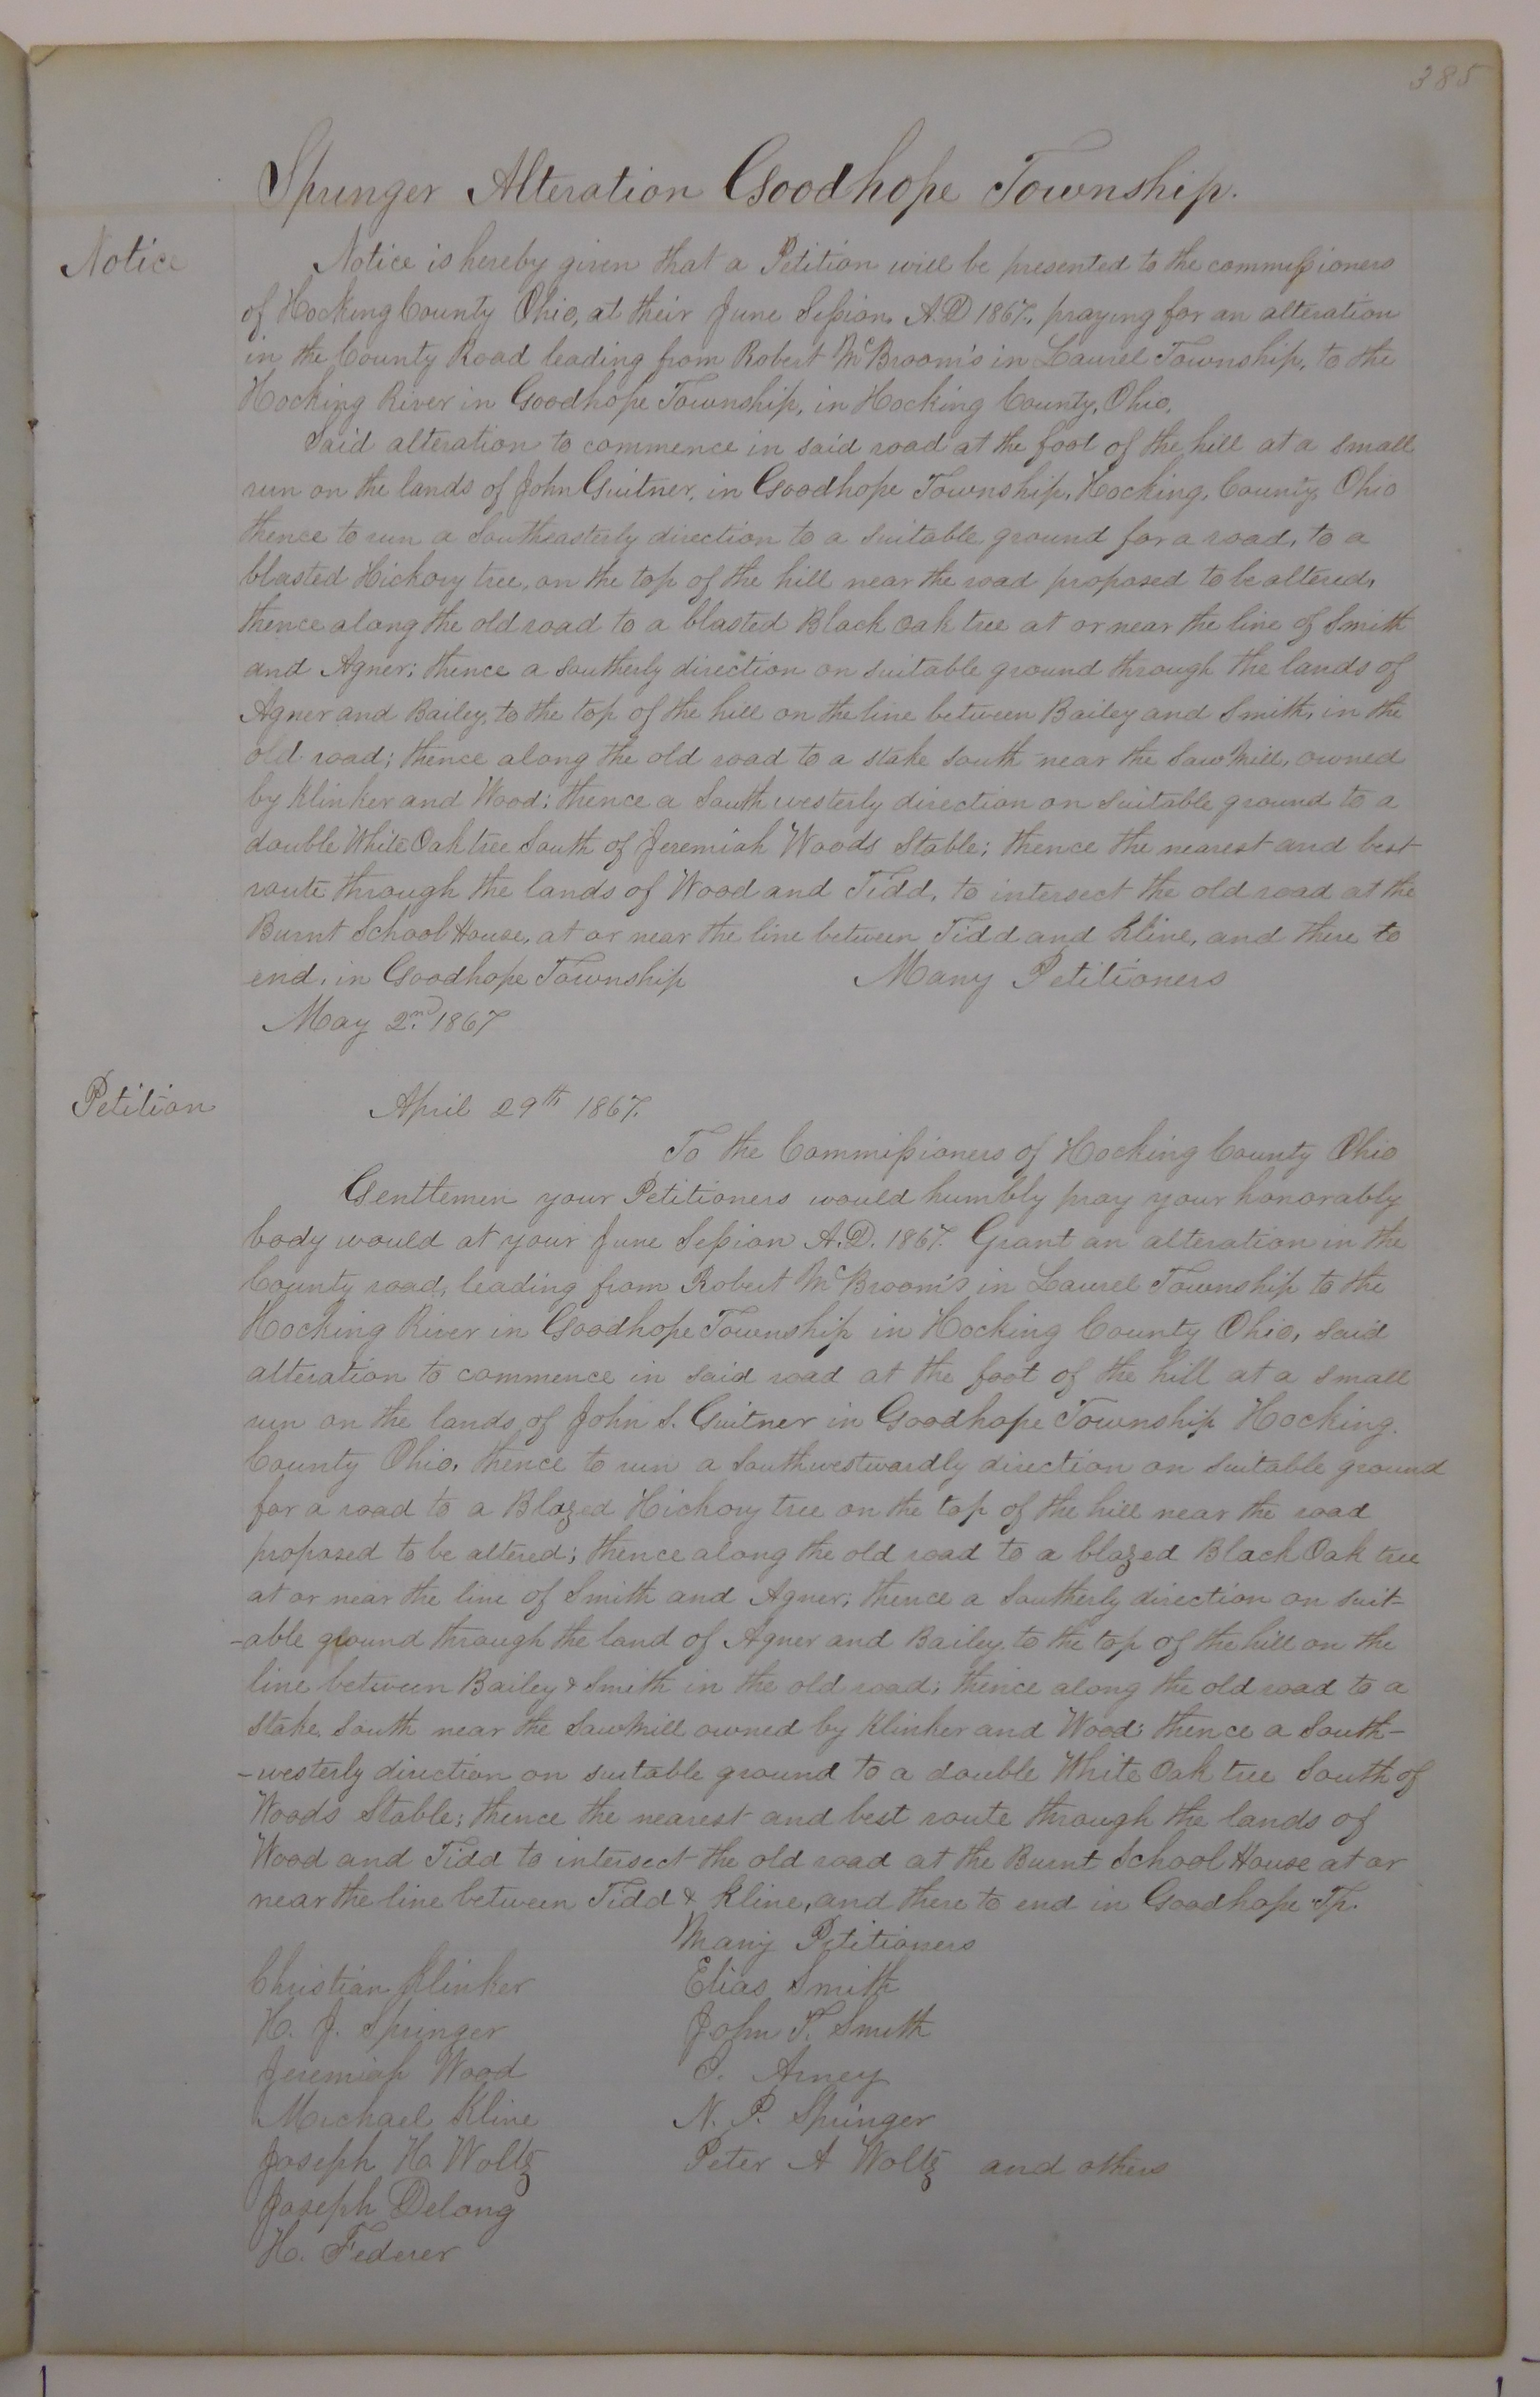 385
Springer Alteration Goodhope Township.
Notice
Notice is hereby given that a Petition will be presented to the commissioners
of Hocking County Ohio, at their June Session A.D 1867, praying for an alteration
in the County Road leading from Robert McBroom's in Laurel Township, to the
Hocking River in Goodhope Township, in Hocking County, Ohio,
Said alteration to commence in said road at the foot of the hill at a small
run on the lands of John Guitner, in Goodhope Township, Hocking, County, Ohio
thence to run a Southeasterly direction to a suitable ground for a road, to a
blasted Hickory tree, on the top of the hill near the road proposed to be altered,
thence along the old road to a blasted Black Oak tree at or near the line of Smith
and Agner; thence a southerly direction on suitable ground through the lands of
Agner and Bailey, to the top of the hill on the line between Bailey and Smith, in the
old road; thence along the old road to a stake South near the Saw Mill, owned
by Klinker and Wood; thence a South westerly direction on suitable ground to a
double White Oak tree South of Jeremiah Woods Stable; thence the nearest and best
route through the lands of Wood and Tidd, to intersect the old road at the
Burnt School House, at or near the line between Tidd and Kline, and there to
end, in Goodhope Township Many Petitioners
May 2nd 1867
Petition
April 29th 1867.
To the Commissioners of Hocking County Ohio
Gentlemen your Petitioners would humbly pray your honorably
body would at your June Session A.D. 1867. Grant an alteration in the
County road, leading from Robert McBroom's in Laurel Township to the
Hocking River in Goodhope Township in Hocking County Ohio, said
alteration to commence in said road at the foot of the hill at a small
run on the lands of John S. Guitner in Goodhope Township Hocking.
County Ohio, thence to run a Southwestwardly direction on suitable ground
for a road to a Blazed Hickory tree on the top of the hill near the road
proposed to be altered; thence along the old road to a blazed Black Oak tree
at or near the line of Smith and Agner; thence a Southerly direction on suit-
-able ground through the land of Agner and Bailey, to the top of the hill on the
line between Bailey & Smith in the old road; thence along the old road to a
Stake South near the Sawmill owned by Klinker and Wood; thence a South-
-westerly direction on suitable ground to a double White Oak tree South of
Woods Stable; thence the nearest and best route through the lands of
Wood and Tidd to intersect the old road at the Burnt School House at or
near the line between Tidd & Kline, and there to end in Goodhope Tp.
Many Petitioners
Christian Klinker Elias Smith
H. J. Springer John T. Smith
Jeremiah Wood S. Arney
Michael Kline N. P. Springer
Joseph H. Woltz Peter A Woltz and others
Joseph Delong
H. Federer